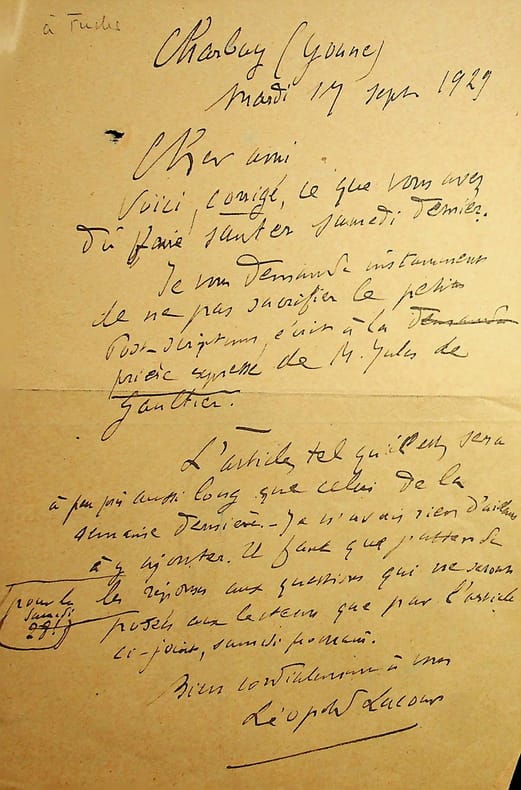 à Fuchs
Charbuy (Yonne)
Mardi 17 sept 1929
Cher ami
Voici, corrigé, ce que vous avez
dû faire sauter samedi dernier.
Je vous demande instamment
de ne pas sacrifier le petit
Post-scriptum, écrit à la demande
prière expresse de M. Jules de
Gaultier.
L'article, tel qu'il est, sera
à peu près aussi long que celui de la
semaine dernière. - Je n'avais rien d'ailleurs
à y ajouter. Il faut que j'attende
les réponses aux questions qui ne seront
posées aux lecteurs que par l'article
ci-joint, samedi prochain.
pour le
samedi
28!
Bien cordialement à vous
Léopold Lacour